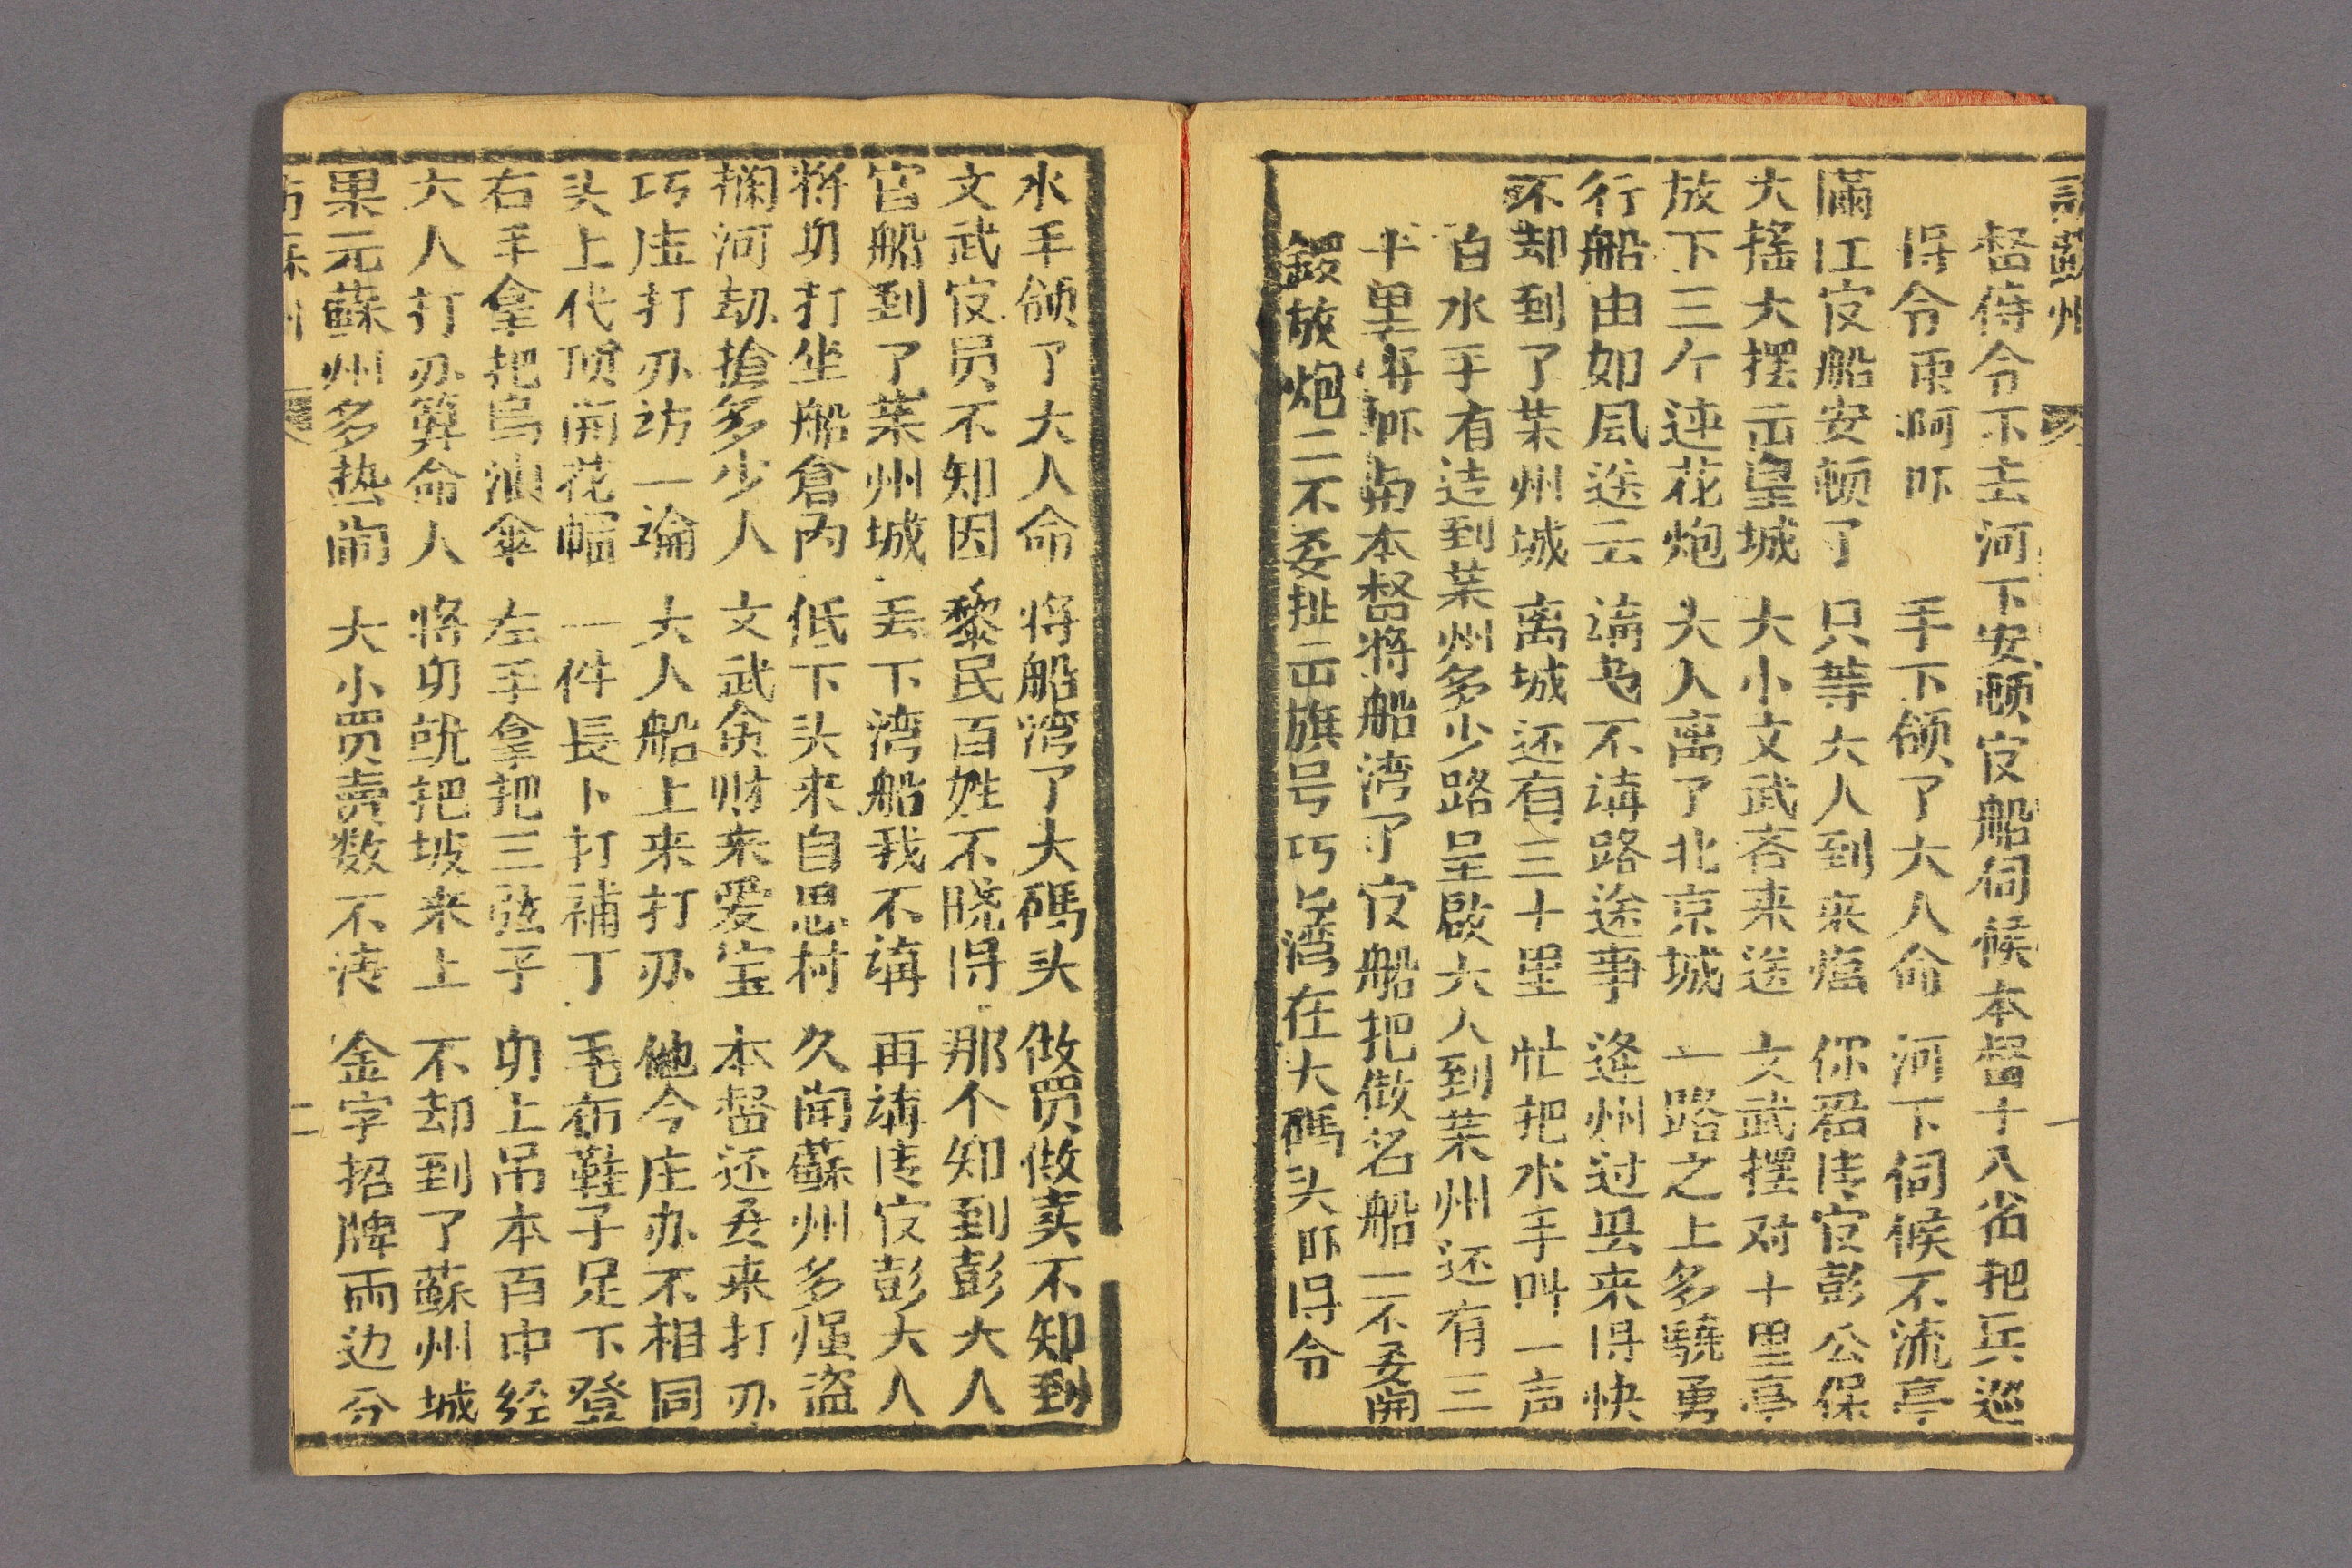 訪蘇州
一
督侍令下去河下安頓官船伺候本督十八省把兵巡
得令再啊吓　手下领了大人命　河下伺候不流亭
滿江官船安顿了　只等大人到来临　你君住官彭公保
大搖大摆出皇城　大小文武吝来送　文武摆对十里亭
放下三个連花炮　大人离了北京城　一路之上多驍勇
行船由如風送云　講也不講路途事　逢州过县来得快
不却到了茱州城　离城还有三十里　忙把水手叫一声
白水手有這到茱州多少路呈啟大人到茱州还有三
十里將吓與本督將船湾了官船把做名船一不要開
鍛放炮二不要扯出旗号巧巧湾在大碼头吓得令
水手领了大人命　将船湾了大碼头　做買做卖不知到
文武官员不知因　黎民百姓不晓得　那个知到彭大人
官船到了茱州城　丟下湾船我不講　再講住官彭大人
将身打坐船倉內　低下头来自思村　久闻蘇州多强盗
攔河劫搶多少人　文武贪财来爱宝　本督还要来打办
巧庄打办访一論　大人船上来打办　他今庄办不相同
头上代顶開花帽　一件長卜打補丁　毛布鞋子足下登
右手拿把烏油傘　左手拿把三弦子　身上吊本百中经
大人打办算命人　将身就把坡来上　不却到了蘇州城
果元蘇州多热闹　大小買賣数不清　金字招牌両边分
訪蘇州
二